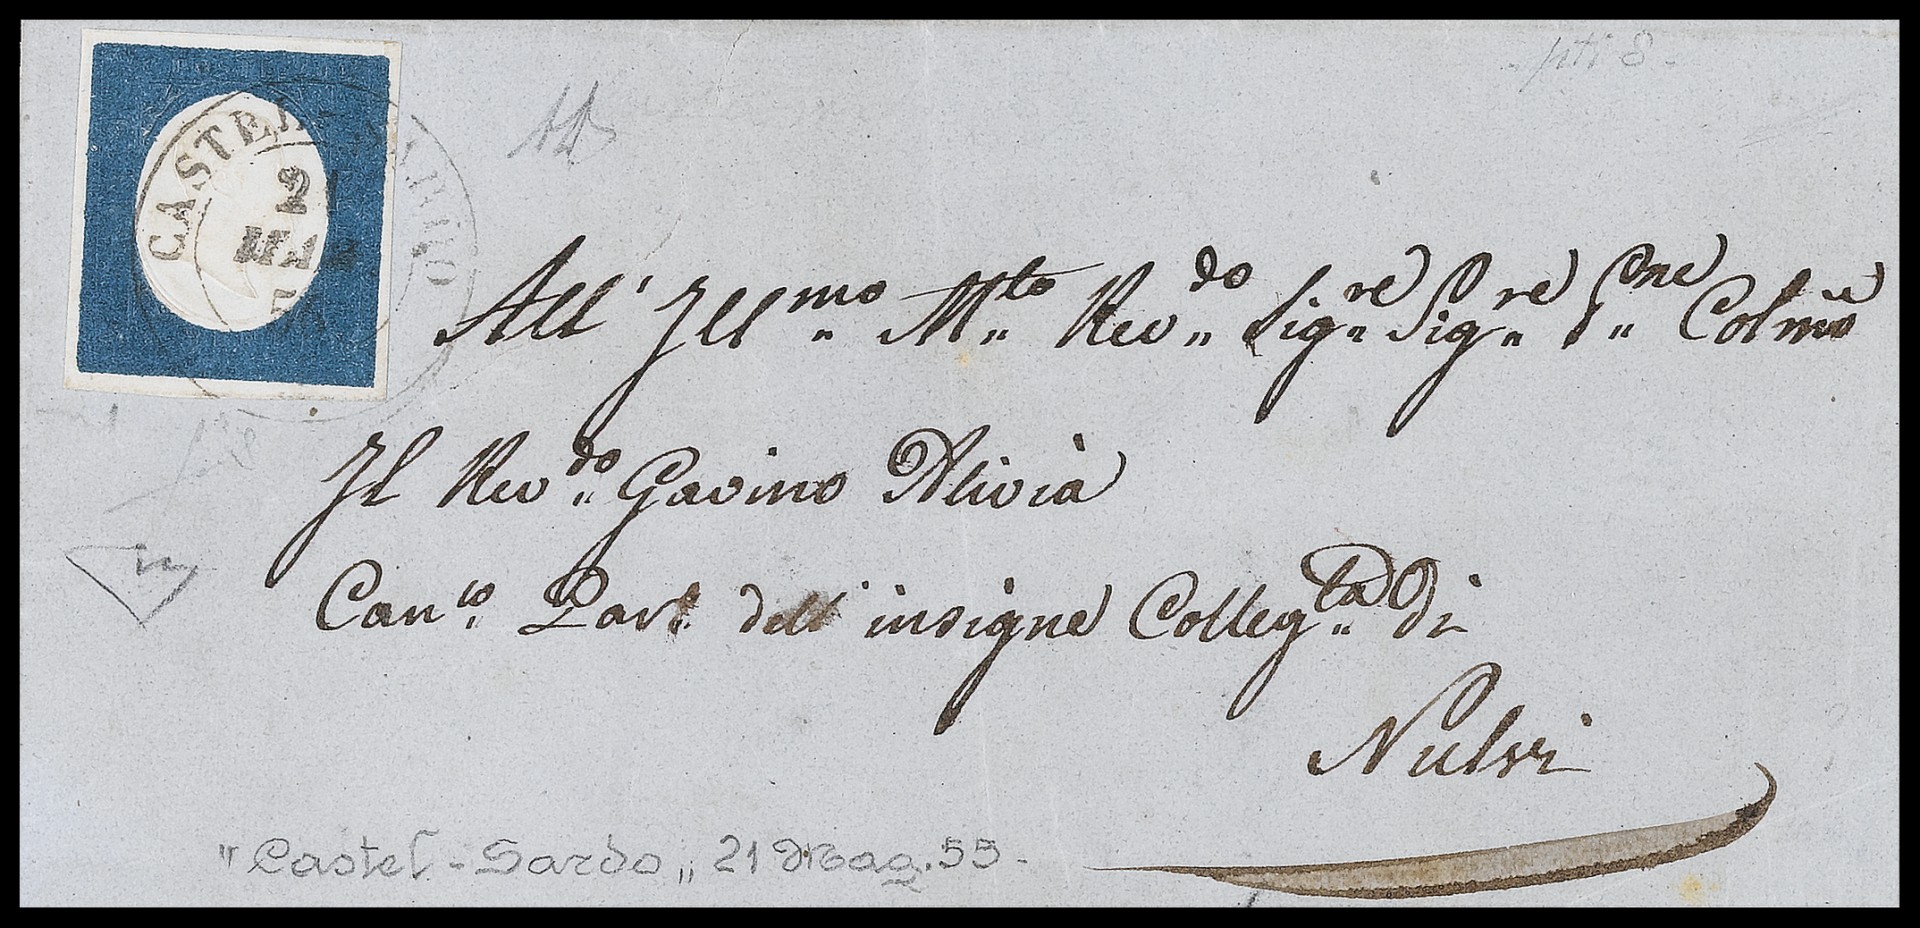 CASTEL SARDO
21
MAG
All' Ill.mo M.to Rev.do Sig.re Sig.re P.ne Colmo
Il Rev.do Gavino Alivia
Can.co Dell' insigne Colleg.ta Di
Nulvi
"Castel-Sardo" 21 Mag. 55.